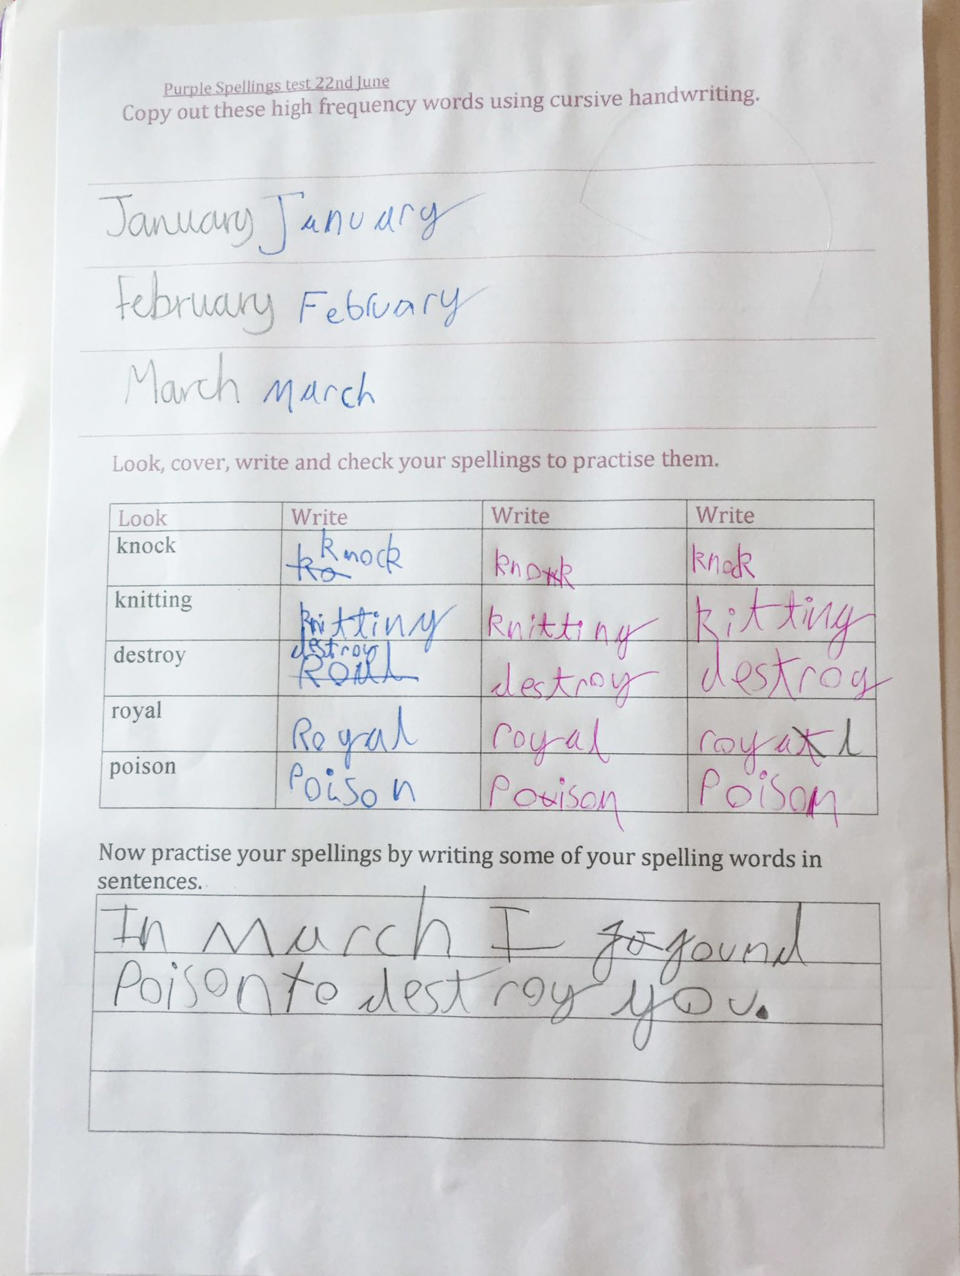 Purple Spellings test 22nd June
Copy out these high frequency words using cursive handwriting.
January January
February February
March March
Look, cover, write and check your spellings to practise them.
Look Write Write Write
knock ko knock knok knok
knitting knitting knitting kitting
destroy destroy destroy destroy
royal Royal royal royal
poison Poison Poison Poison
Now practise your spellings by writing some of your spelling words in
sentences.
In March I fo found
Poison to destroy you.